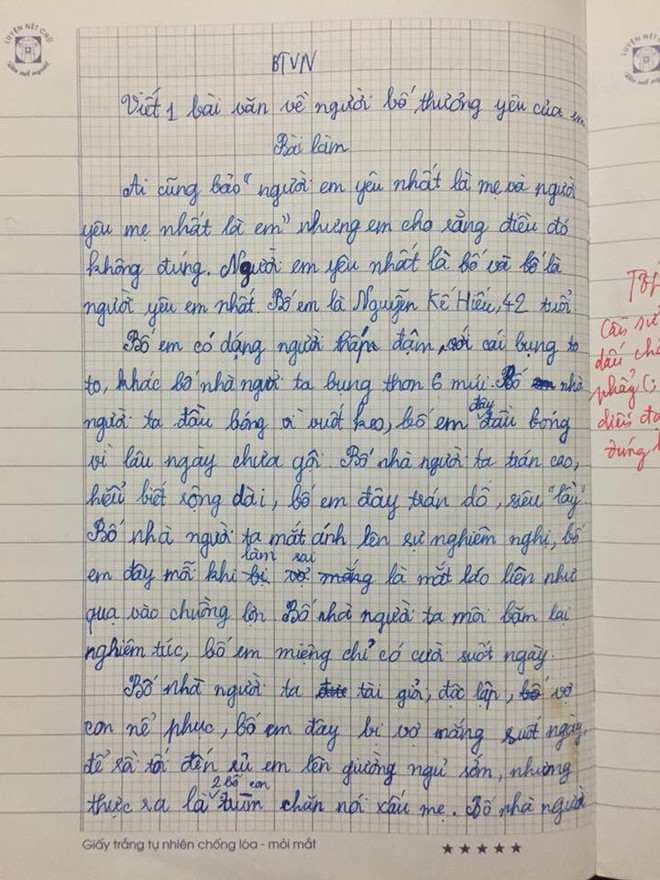 LUYỆN NÉT CHỮ
Rèn nết người
BTVN
Viết 1 bài văn về người bố thương yêu của em
Bài làm
Ai cũng bảo "người em yêu nhất là mẹ và người
yêu mẹ nhất là em" nhưng em cho rằng điều đó
không đúng. Người em yêu nhất là bố và bố là
người yêu em nhất. Bố em là Nguyễn Kế Hiếu, 42 tuổi.
Bố em có dáng người thấp đậm, với cái bụng to
to, khác bố nhà người ta bụng thon 6 múi. Bố nhà
người ta đầu bóng vì vuốt keo, bố em đây đầu bóng
vì lâu ngày chưa gội. Bố nhà người ta trán cao,
hiểu biết rộng dài, bố em đây trán dô, siêu "lầy"
Bố nhà người ta mắt ánh lên sự nghiêm nghị, bố
em đây mỗi khi làm sai là mắt láo liên như
quạ vào chuồng lợn. Bố nhà người ta môi bặm lại
nghiêm túc, bố em miệng chỉ có cười suốt ngày.
Bố nhà người ta tài giỏi, độc lập, vợ
con nể phục, bố em đây bị vợ mắng suốt ngày,
để rồi tối đến rủ em lên giường ngủ sớm, nhưng
thực ra là 2 bố con trùm chăn nói xấu mẹ. Bố nhà người
Giấy trắng tự nhiên chống lóa - mỏi mắt
★★★★★
LUYỆN NÉT
Cần sử
dấu
diễn đạ
đúng